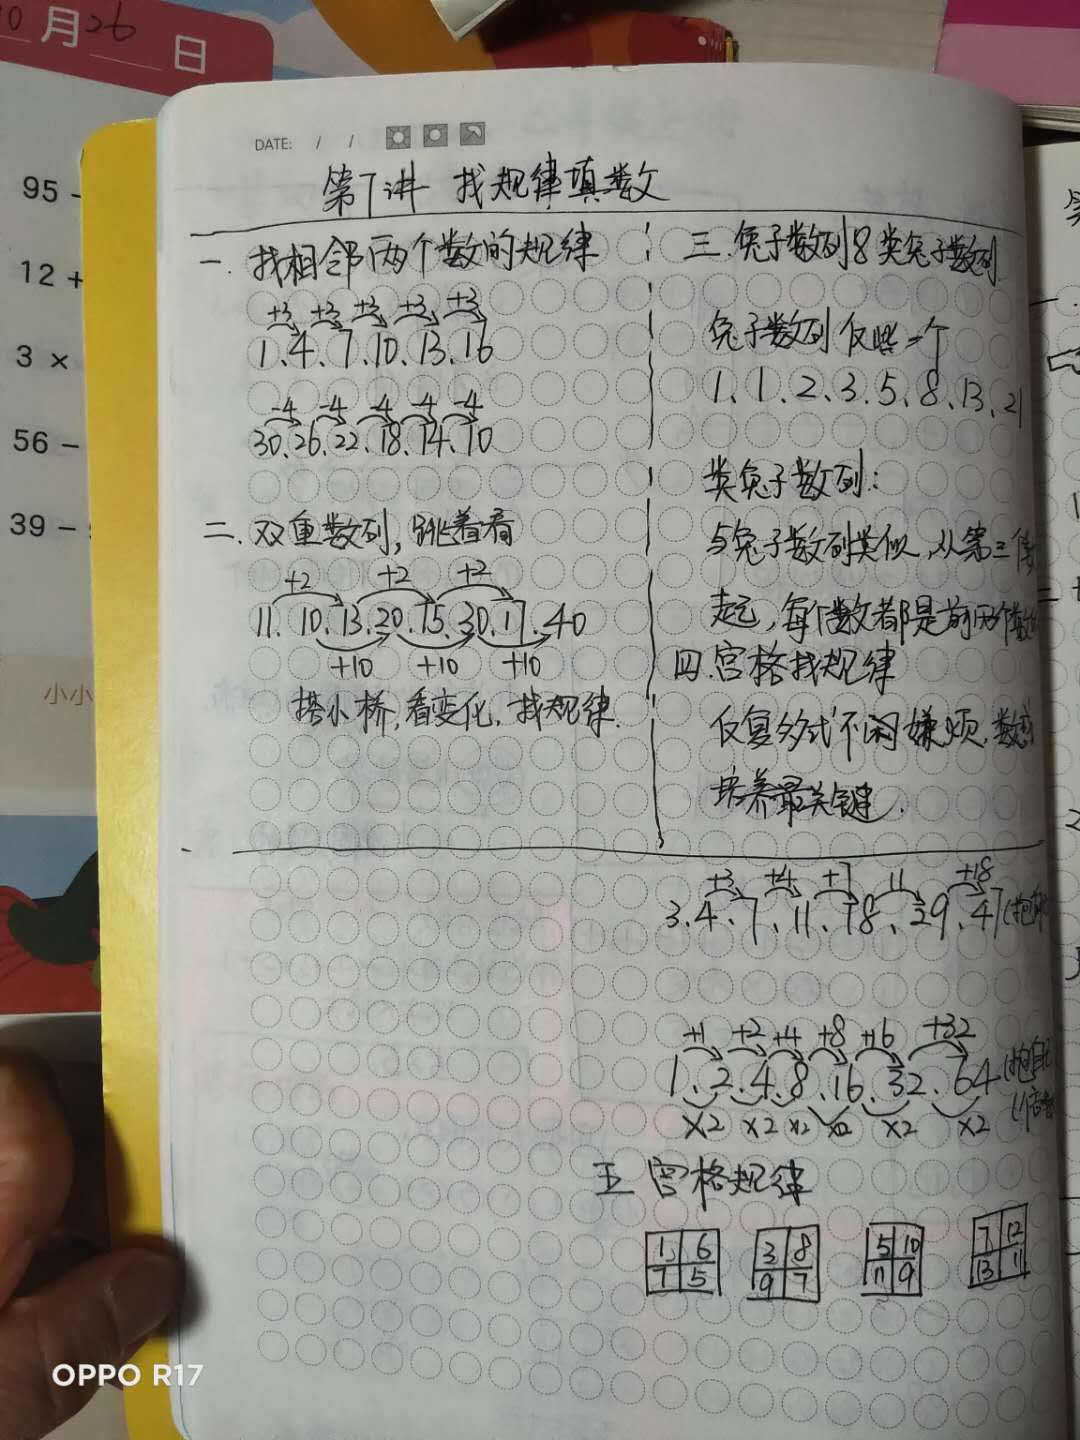 10月26日
95 -
12 +
3 ×
56 -
39 -
小小
DATE: / /
第7讲 找规律填数
一. 找相邻两个数的规律
+3 +3 +3 +3 +3
1、4、7、10、13、16
-4 -4 -4 -4 -4
30、26、22、18、14、10
二. 双重数列, 跳着看
+2 +2 +2
11. 10. 13. 20. 15. 30. 17. 40
+10 +10 +10
搭小桥, 看变化, 找规律.
三. 兔子数列8类兔子数列
兔子数列仅此一个
1、1、2、3、5、8、13、21
类兔子数列:
与兔子数列类似, 从第三
起, 每个数都是前两个数
四. 宫格找规律
不闲嫌烦, 数感
培养最关键.
+3 +4 +7 11 +18
3. 4. 7. 11. 18. 29. 47
+1 +2 +4 +8 +16 +32
1. 2. 4. 8. 16. 32. 64
×2 ×2 ×2 ×2 ×2 ×2
五 宫格规律
1 6 3 8 5 10 7 12
7 5 9 7 11 9 13 11
OPPO R17